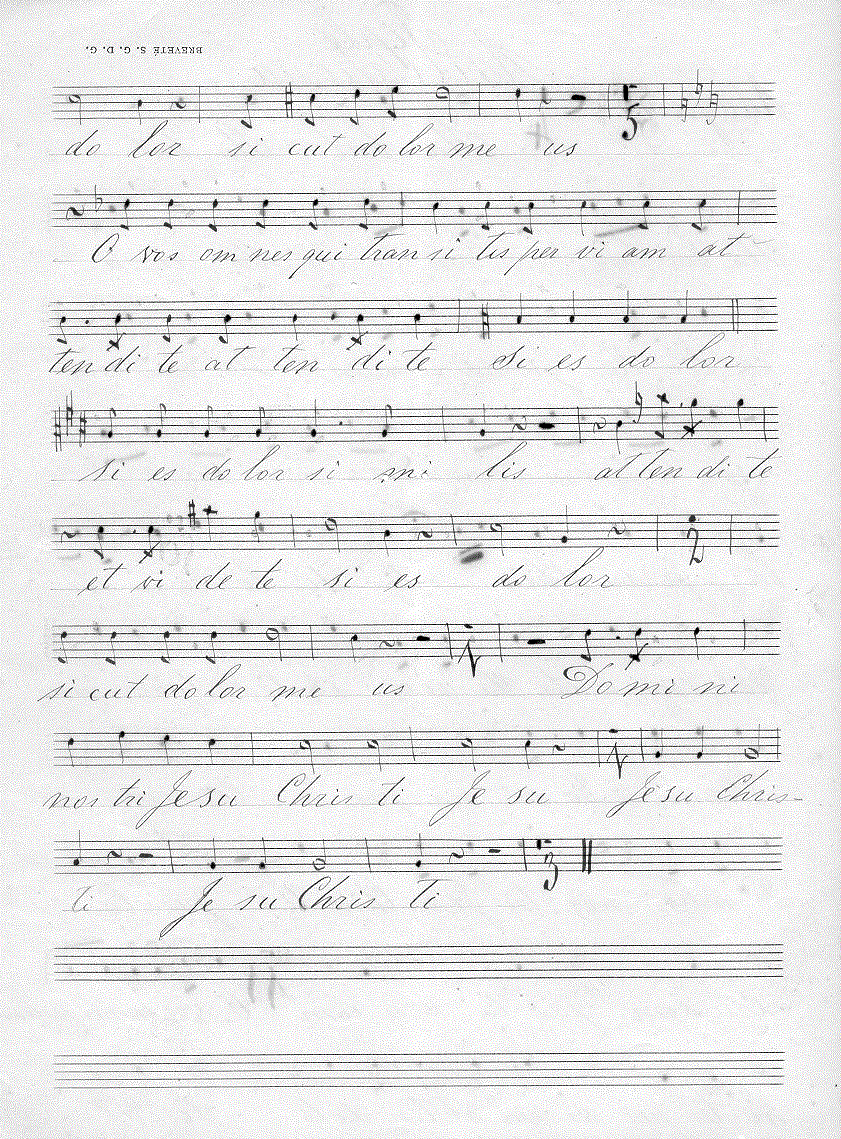 BREVETÉ S. G. D. G.
do lor si cut do lor me us
5
O vos om nes qui tran si tis per vi am at
ten di te at ten di te Si es do lor
si es do lor si mi lis at ten di te
et vi de te si es do lor
2
si cut do lor me us Do mi ni
nos tri Je su Chris ti Je su Je su Chris-
ti Je su Chris ti
3